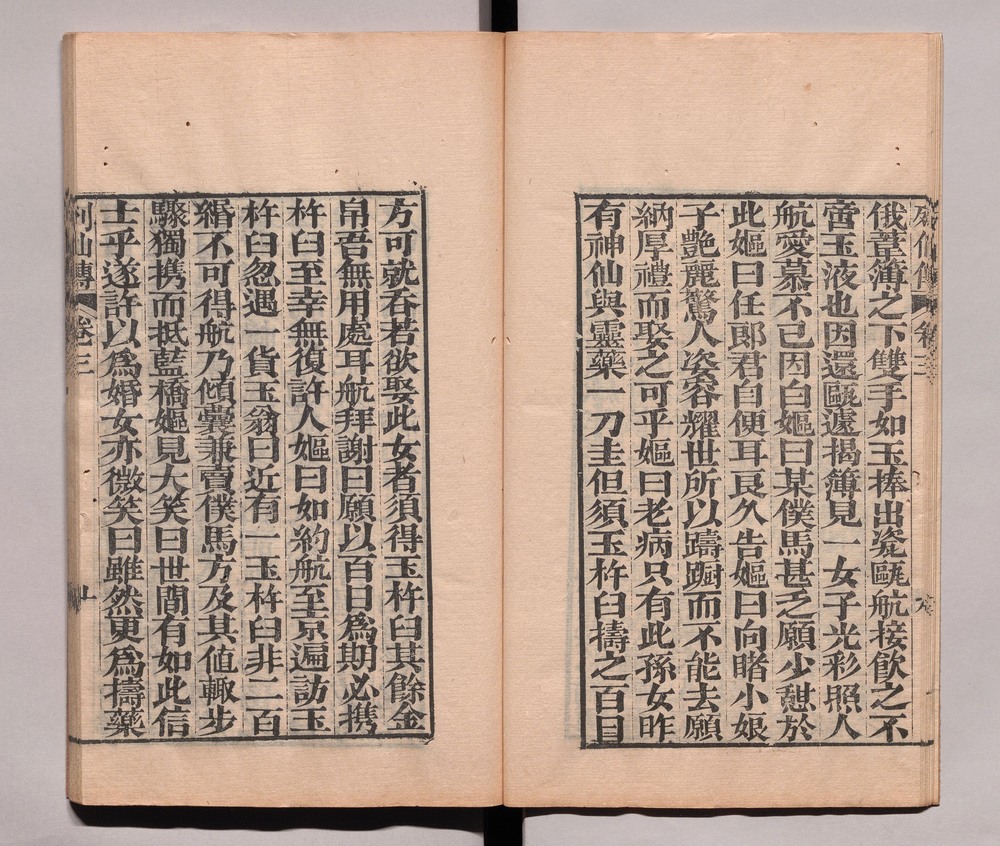 列仙傳 卷三
俄葦簿之下雙手如玉捧出瓷甌航接飲之不
啻玉液也因還甌遽揭簿見一女子光彩照人
航愛慕不已因白嫗曰某僕馬甚乏願少憇於
此嫗曰任郎君自便耳良久告嫗曰向睹小娘
子艷麗驚人姿容耀世所以躊躕而不能去願
納厚禮而娶之可乎嫗曰老病只有此孫女昨
有神仙與靈藥一刀圭但須玉杵臼擣之百日
方可就吞若欲娶此女者須得玉杵臼其餘金
帛吾無用處耳航拜謝曰願以百日為期必携
杵臼至幸無復許人嫗曰如約航至京遍訪玉
杵臼忽遇一貨玉翁曰近有一玉杵臼非二百
緡不可得航乃傾囊兼賣僕馬方及其值輙步
驟獨携而抵藍橋嫗見大笑曰世間有如此信
士乎遂許以爲婚女亦微笑曰雖然更爲擣藥
列仙傳 卷三